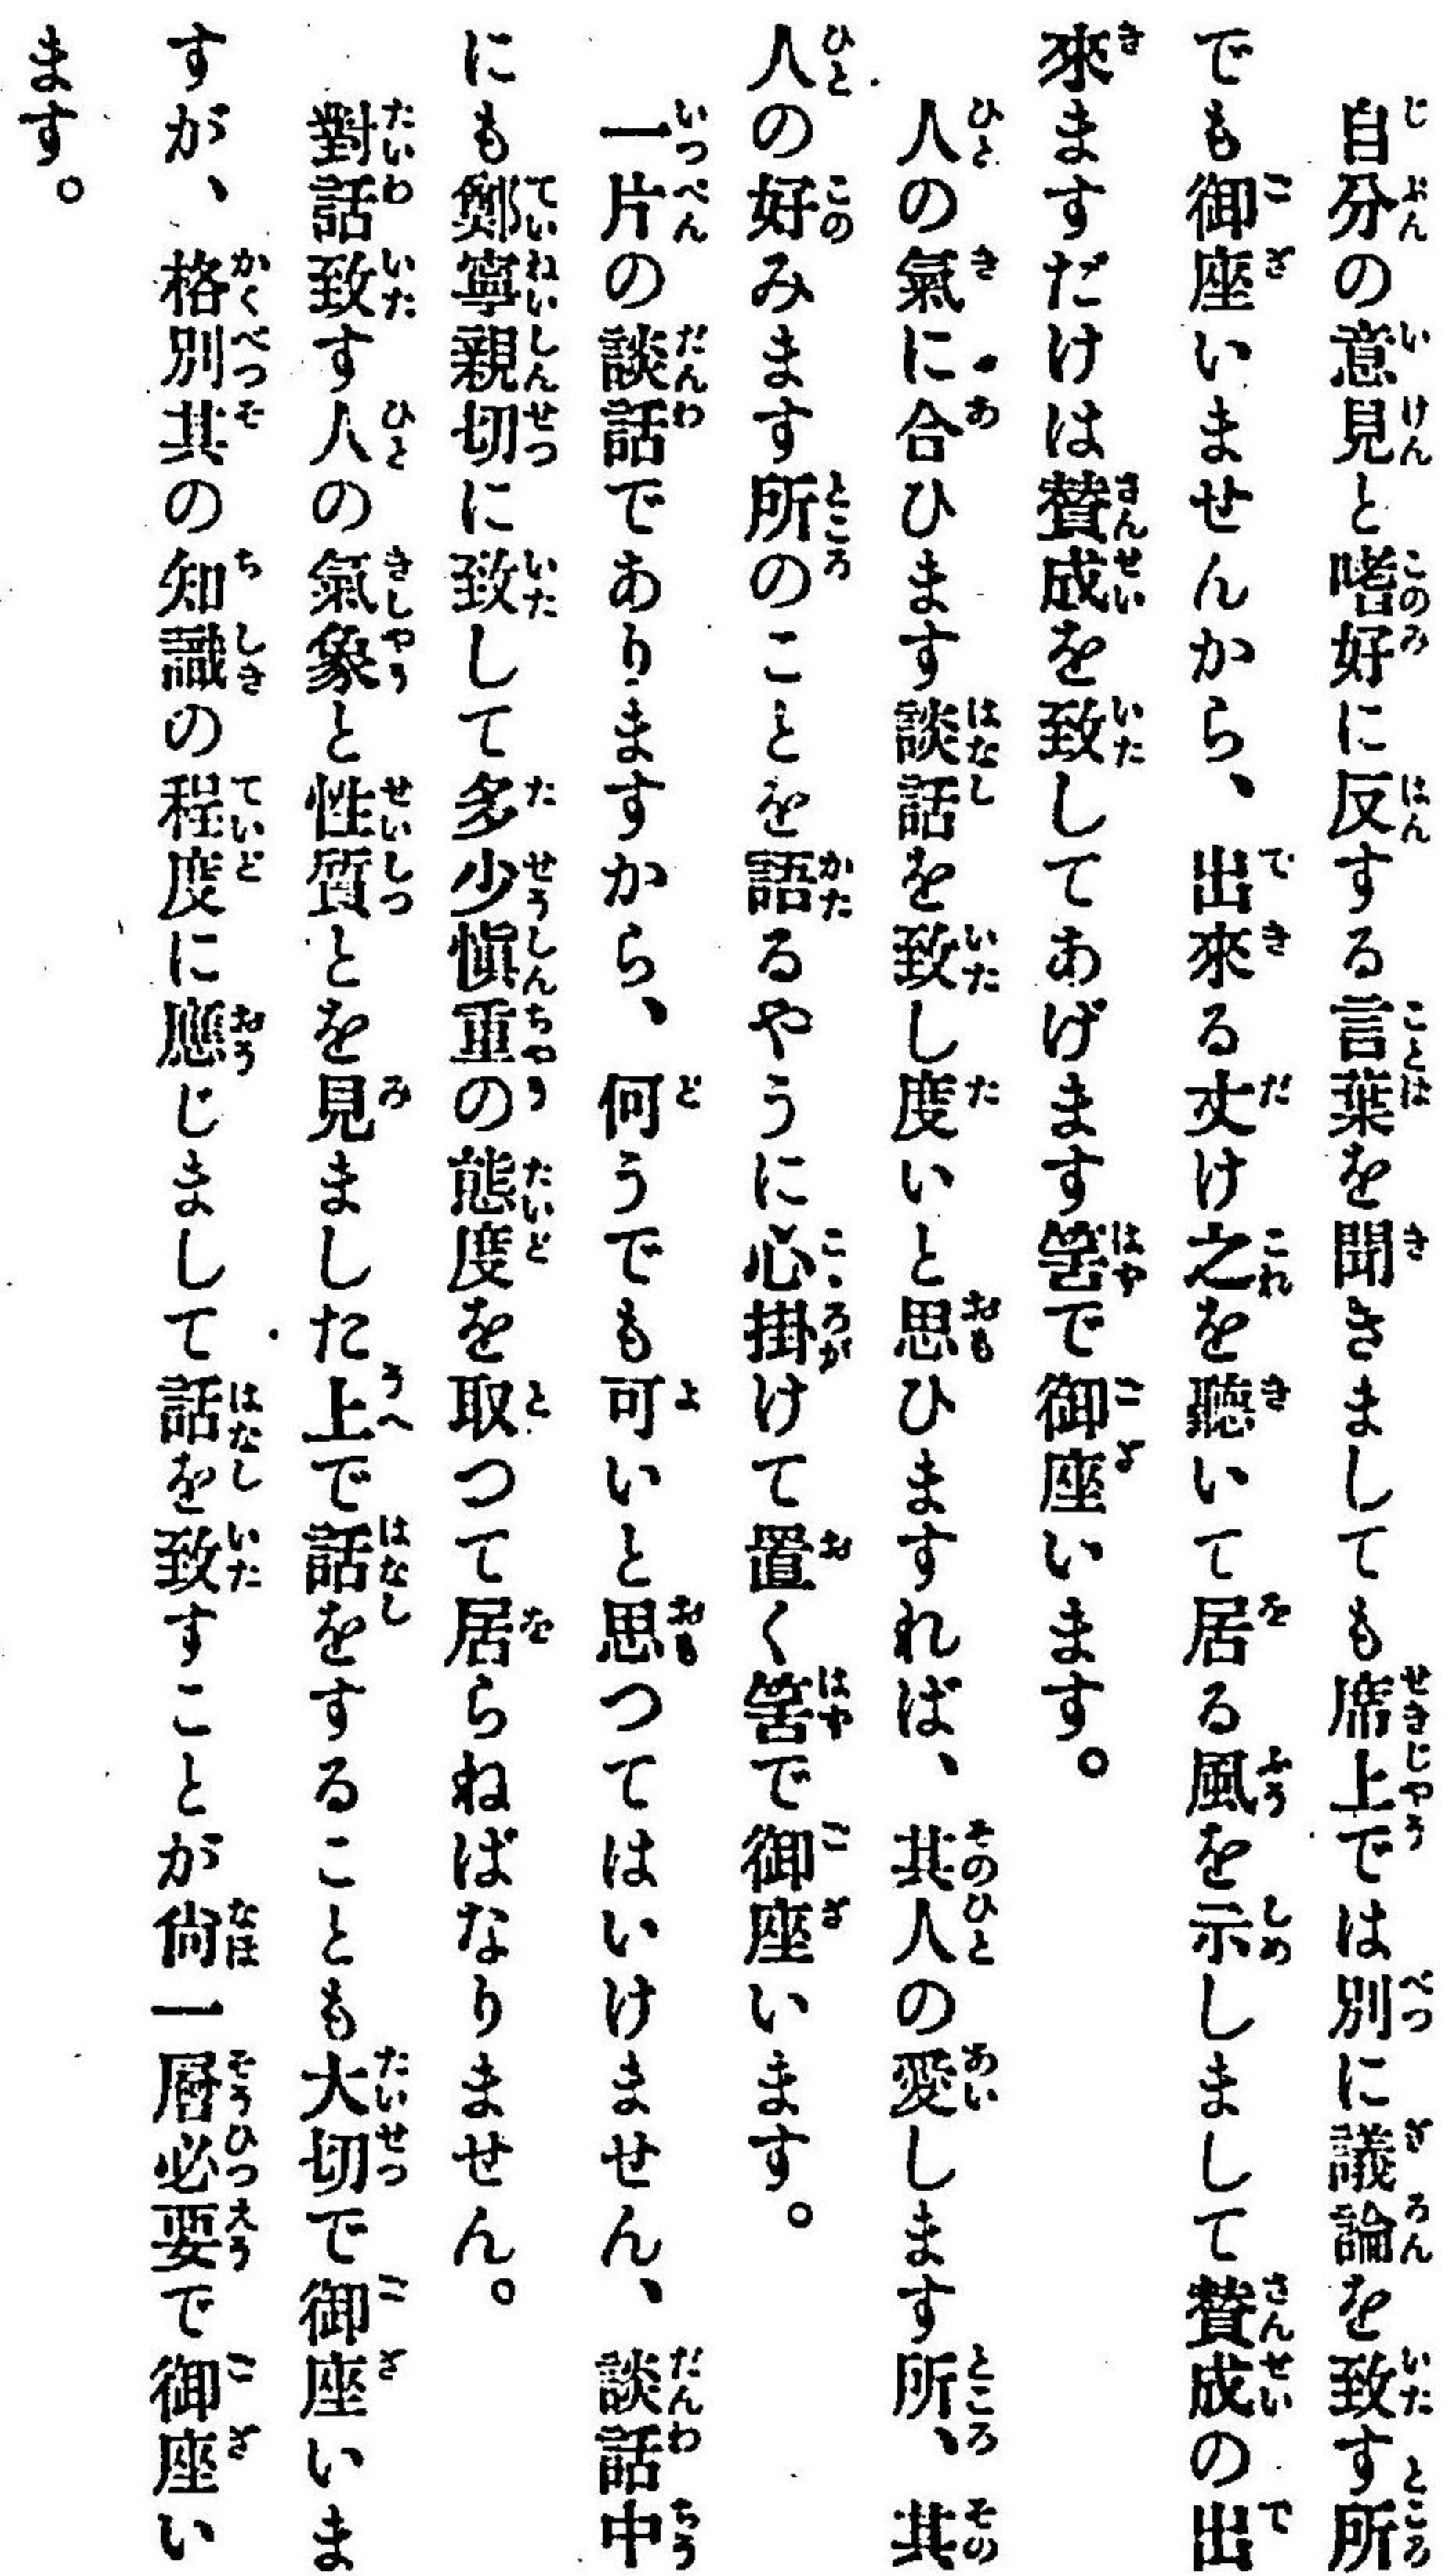 自分の意見と嗜好に反する言葉を聞きましても席上では別に議論を致す所
でも御座いませんから、出來る丈け之を聽いて居る風を示しまして賛成の出
來ますだけは賛成を致してあげます筈で御座います。
人の氣に合ひます談話を致し度いと思ひますれば、其人の愛します所、其
人の好みます所のことを語るやうに心掛けて置く筈で御座います。
一片の談話でありますから、何うでも可いと思つてはいけません、談話中
にも鄭寧親切に致して多少愼重の態度を取つて居らねばなりません。
對話致す人の氣象と性質とを見ました上で話をすることも大切で御座いま
すが、格別其の知識の程度に應じまして話を致すことが尙一層必要で御座い
ます。